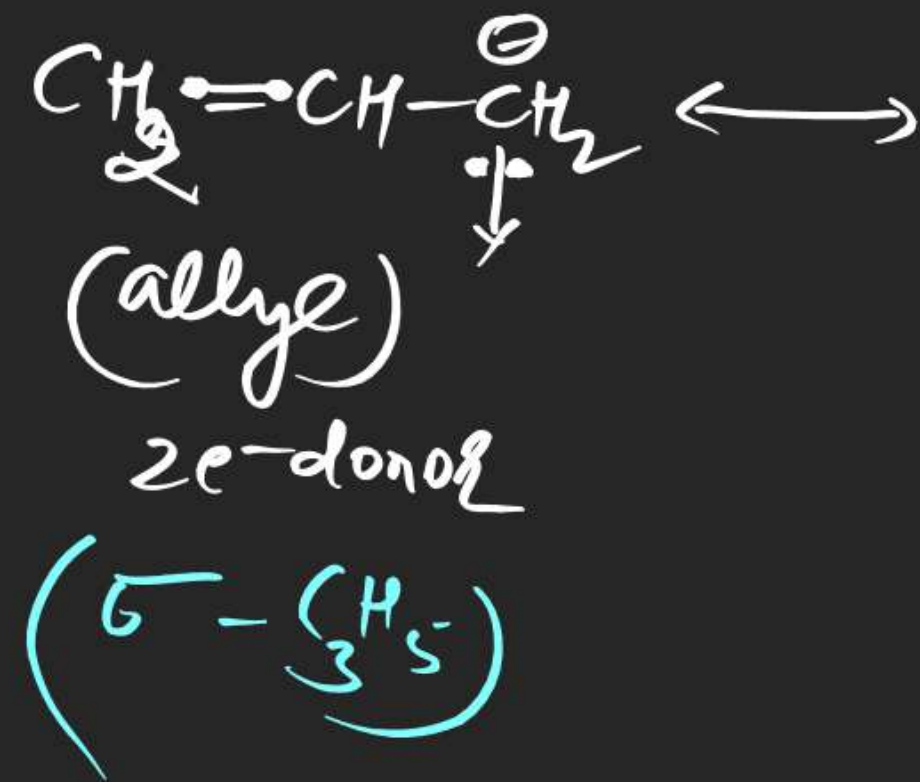 ⊖
CH₂=CH-CH₂ ⟷
(allyl)
2e-donor
(σ-C₃H₅)